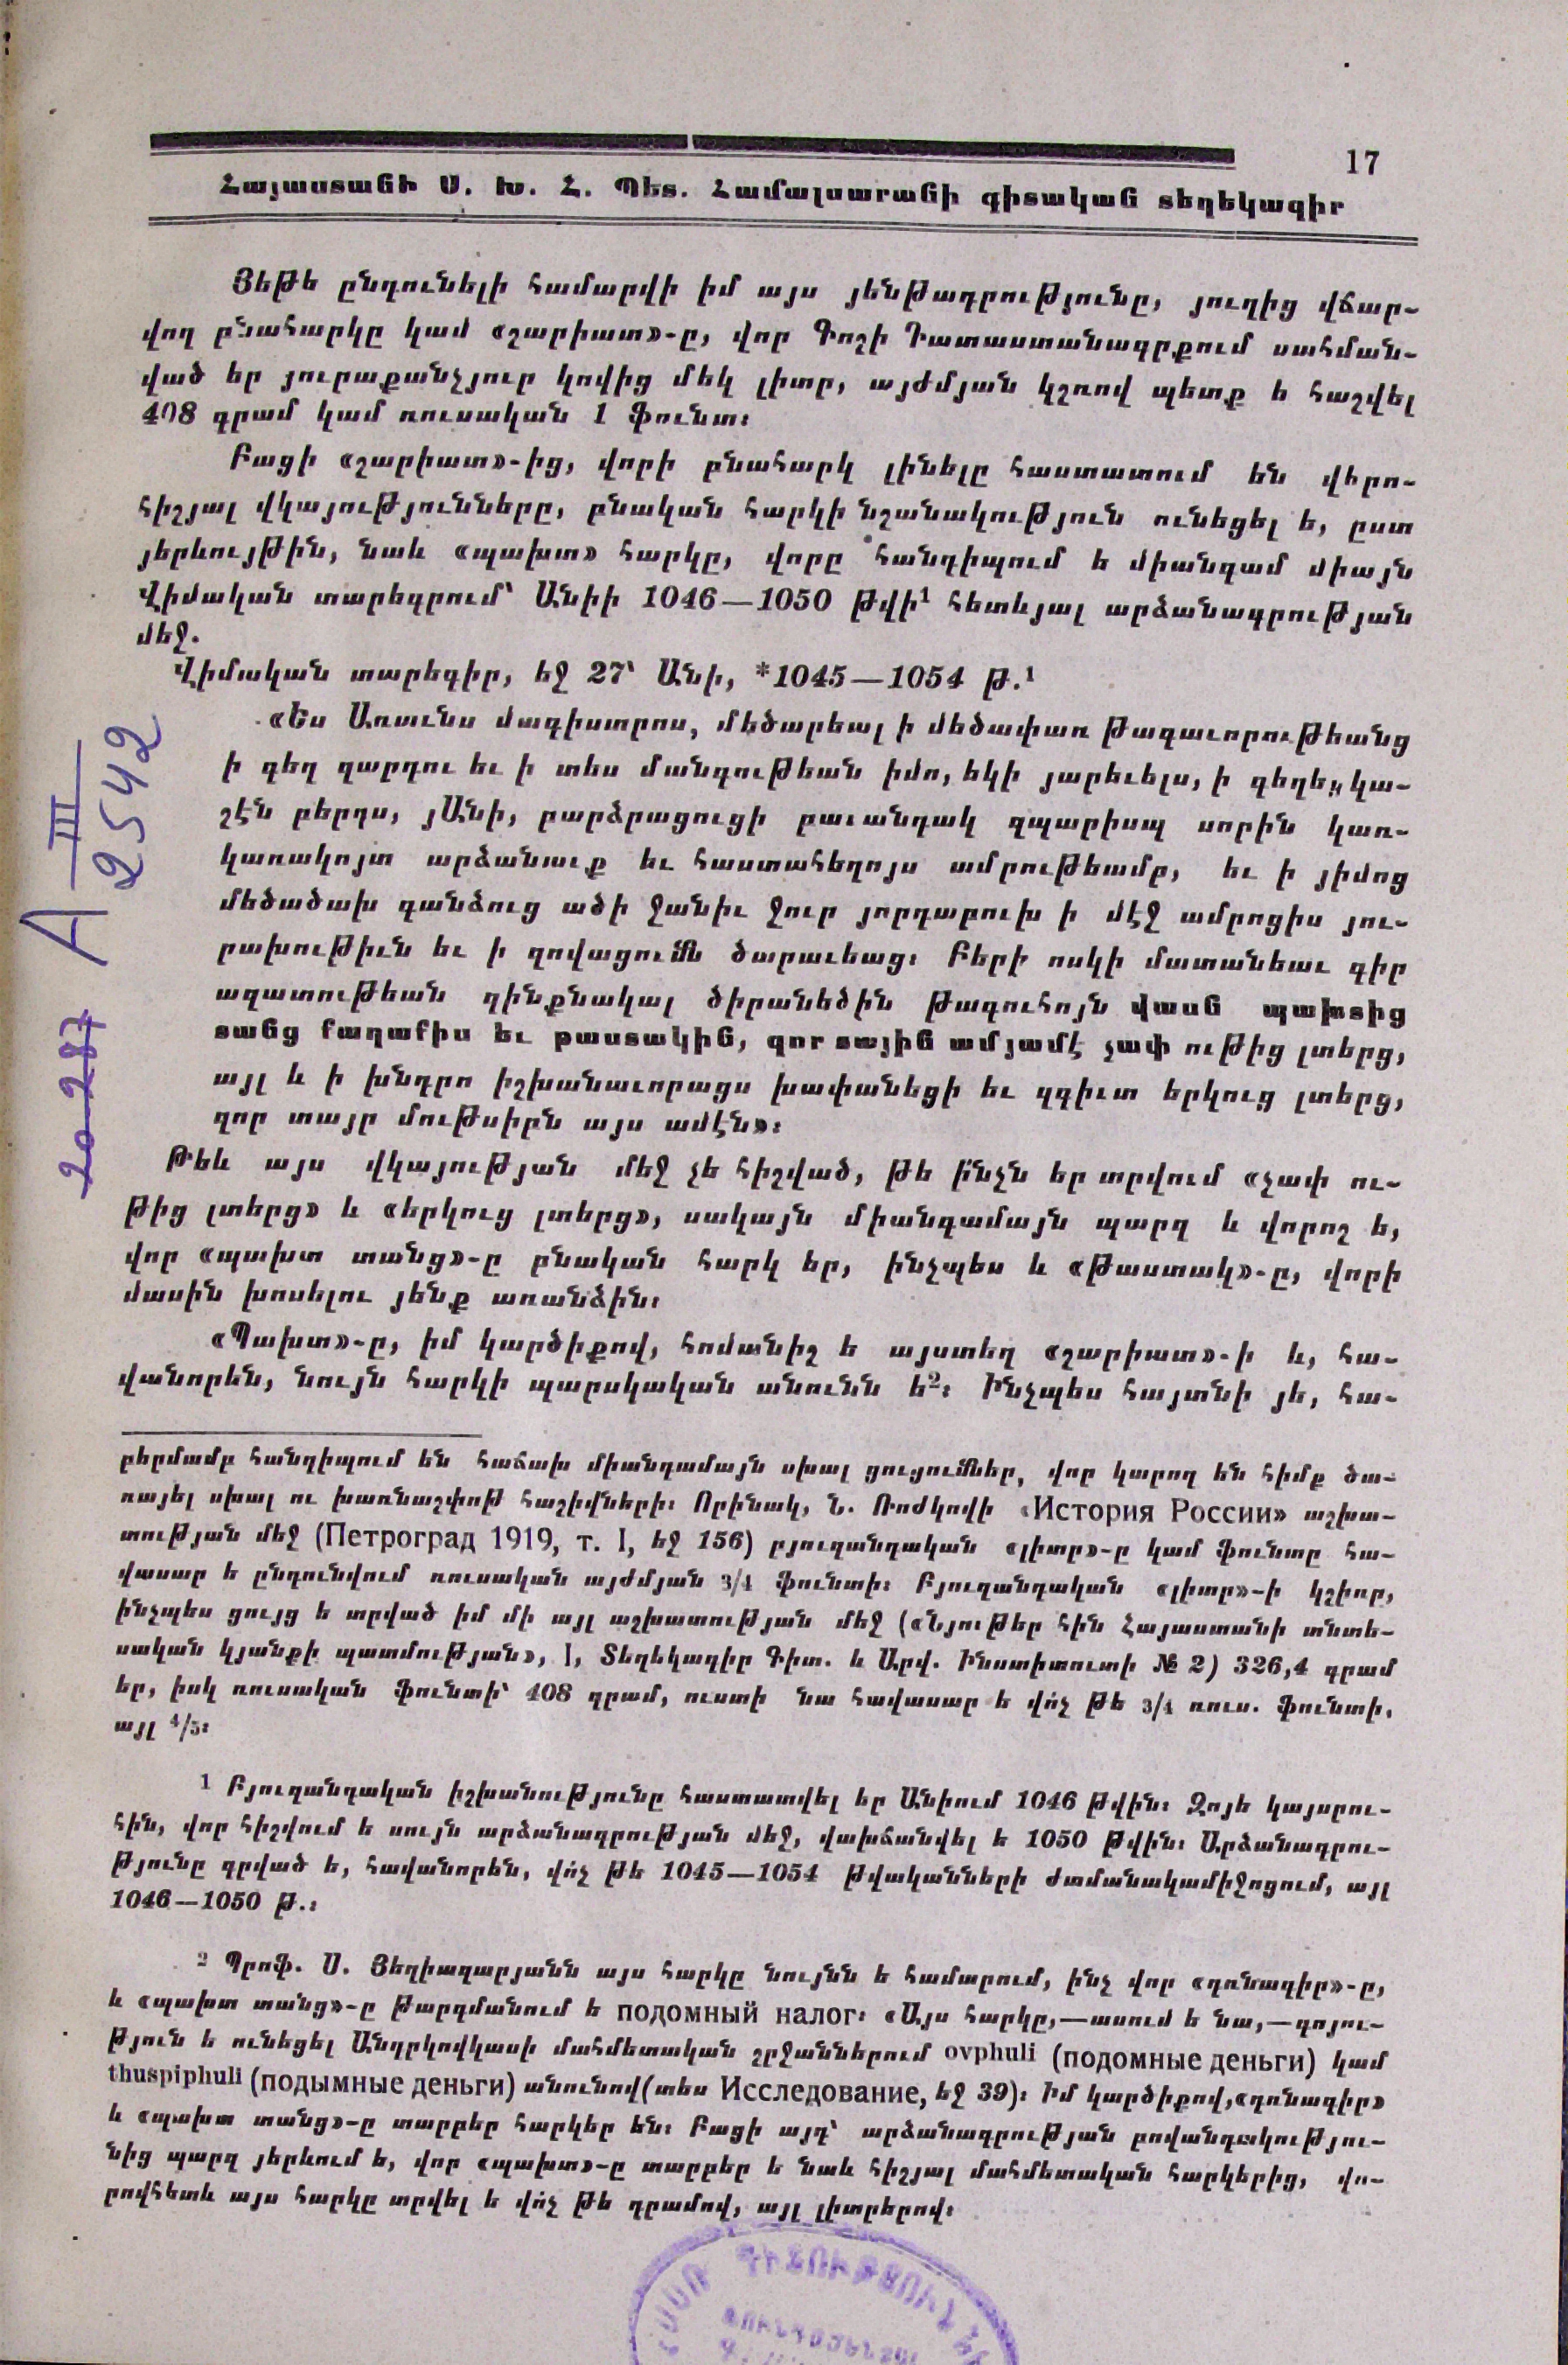 17
Հայաստանի Ս. Խ. Հ. Պետ. Համալսարանի գիտական տեղեկագիր
Յեթե ընդունելի համարվի իմ այս յենթադրությունը, յուղից վճար-
վող բնահարկը կամ «շարիատ»-ը, վոր Գոշի Դատաստանագրքում սահման-
ված եր յուրաքանչյուր կովից մեկ լիտր, այժմյան կշռով պետք ե հաշվել
408 գրամ կամ ռուսական 1 ֆունտ։
Բացի «շարիատ»-ից, վորի բնահարկ լինելը հաստատում են վերո-
հիշյալ վկայությունները, բնական հարկի նշանակություն ունեցել ե, ըստ
յերևույթին, նաև «պախտ» հարկը, վորը հանդիպում ե միանգամ միայն
Վիմական տարեգրում՝ Անիի 1046—1050 թվի¹ հետևյալ արձանագրության
մեջ.
Վիմական տարեգիր, եջ 27՝ Անի, *1045—1054 թ.¹
«Ես Առունս մագիստրոս, մեծարեալ ի մեծափառ թագաւորութեանց
ի գեղ զարդու եւ ի տես մանգութեան իմո, եկի յարեւելս, ի գեղե կա-
շէն բերդս, յԱնի, բարձրացուցի բաւանդակ զպարիսպ սորին կառ-
կառակոյտ արձանաւք եւ հաստահեղոյս ամրութեամբ, եւ ի յիմոց
մեծածախ գանձուց ածի ջանիւ ջուր յորդաբուխ ի մէջ ամրոցիս յու-
րախութիւն եւ ի զովացումն ծարաւեաց։ Բերի ոսկի մատանեաւ գիր
ազատութեան զինքնակալ ծիրանեծին թագուհոյն վասն պախտից
տանց քաղաքիս եւ թաստակին, զոր տային ամյամէ չափ ութից լտերց,
այլ և ի խնդրո իշխանաւորացս խափանեցի եւ զգիւտ երկուց լտերց,
զոր տայր մութսիրն այս ամէն»։
Թեև այս վկայության մեջ չե հիշված, թե ի՛նչն եր տրվում «չափ ու-
թից լտերց» և «երկուց լտերց», սակայն միանգամայն պարզ և վորոշ ե,
վոր «պախտ տանց»-ը բնական հարկ եր, ինչպես և «թաստակ»-ը, վորի
մասին խոսելու յենք առանձին։
«Պախտ»-ը, իմ կարծիքով, հոմանիշ ե այստեղ «շարիատ»-ի և, հա-
վանորեն, նույն հարկի պարսկական անունն ե²։ Ինչպես հայտնի յե, հա-
բերմամբ հանդիպում են հաճախ միանգամայն սխալ ցուցումներ, վոր կարող են հիմք ծա-
ռայել սխալ ու խառնաշփոթ հաշիվների։ Որինակ, Ն. Ռոժկովի «История России» աշխա-
տության մեջ (Петроград 1919, т. I, եջ 156) բյուզանդական «լիտր»-ը կամ ֆունտը հա-
վասար ե ընդունվում ռուսական այժմյան 3/4 ֆունտի։ Բյուզանդական «լիտր»-ի կշիռը,
ինչպես ցույց ե տրված իմ մի այլ աշխատության մեջ («Նյութեր հին Հայաստանի տնտե-
սական կյանքի պատմության», I, Տեղեկագիր Գիտ. և Արվ. Ինստիտուտի № 2) 326,4 գրամ
եր, իսկ ռուսական ֆունտի՝ 408 գրամ, ուստի նա հավասար ե վո՛չ թե 3/4 ռուս. ֆունտի,
այլ 4/5։
1 Բյուզանդական իշխանությունը հաստատվել եր Անիում 1046 թվին։ Զոյե կայսրու-
հին, վոր հիշվում ե սույն արձանագրության մեջ, վախճանվել ե 1050 թվին։ Արձանագրու-
թյունը գրված ե, հավանորեն, վո՛չ թե 1045—1054 թվականների ժամանակամիջոցում, այլ
1046—1050 թ.։
2 Պրոֆ. Ս. Յեղիազարյանն այս հարկը նույնն ե համարում, ինչ վոր «դռնագիր»-ը,
և «պախտ տանց»-ը թարգմանում ե подомный налог։ «Այս հարկը,—ասում ե նա,—գոյու-
թյուն ե ունեցել Անդրկովկասի մահմետական շրջաններում ovphuli (подомные деньги) կամ
thuspiphuli (подымные деньги) անունով (տես Исследование, եջ 39)։ Իմ կարծիքով, «դռնագիր»
և «պախտ տանց»-ը տարբեր հարկեր են։ Բացի այդ՝ արձանագրության բովանդակությու-
նից պարզ յերևում ե, վոր «պախտ»-ը տարբեր ե նաև հիշյալ մահմետական հարկերից, վո-
րովհետև այս հարկը տրվել ե վո՛չ թե դրամով, այլ լիտրերով։
A III
2542
20 287